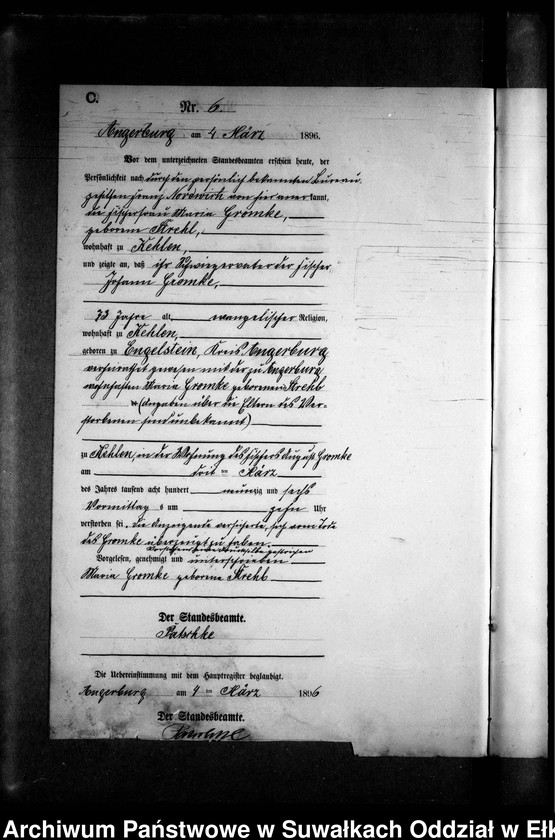 C.
Nr. 6.
Angerburg am 4 März 1896.
Vor dem unterzeichneten Standesbeamten erschien heute, der
Persönlichkeit nach durch den persönlich bekannten Bureau
gehilfen Franz von hier anerkannt,
die Fischerfrau Maria Gromke,
geborene Krehl,
wohnhaft zu Kehlen,
und zeigte an, daß ihr Schwiegervater der Fischer
Johann Gromke,
73 Jahre alt, evangelischer Religion,
wohnhaft zu Kehlen,
geboren zu Engelstein, Kreis Angerburg
verheirathet gewesen mit der zu Angerburg
wohnhaften Maria Gromke geborenen Krehl
(Angaben über die Eltern des Ver-
storbenen sind unbekannt)
zu Kehlen, in der Wohnung des Fischers August Gromke
am drei ten März
des Jahres tausend acht hundert neunzig und sechs
Vormittag s um zehn Uhr
verstorben sei. Die Anzeigende versicherte, sich vom Tode
des Gromke überzeugt zu haben.
Vorgelesen, genehmigt und unterschrieben
Maria Gromke geborene Krehl
Der Standesbeamte.
Patschke
Die Uebereinstimmung mit dem Hauptregister beglaubigt.
Angerburg am 4 ten März 1896
Der Standesbeamte.
Archiwum Państwowe w Suwałkach Oddział w Ełk